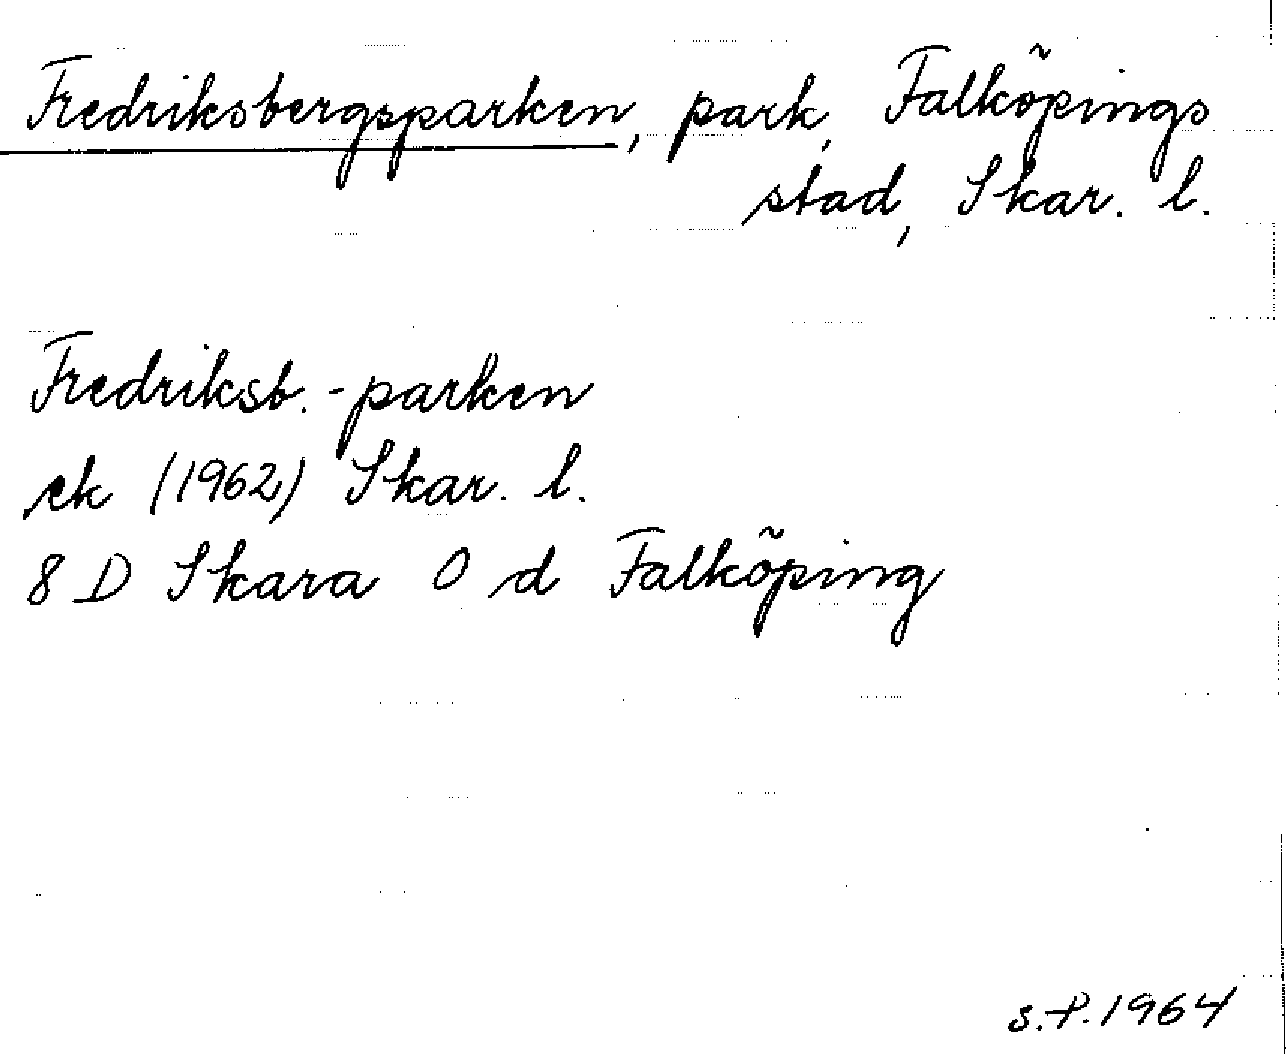 Fredriksbergsparken, park, Falköpings
stad, Skar. l.
Fredriksb.-parken
ek (1962) Skar. l.
8 D Skara 0 d Falköping
S.P. 1964